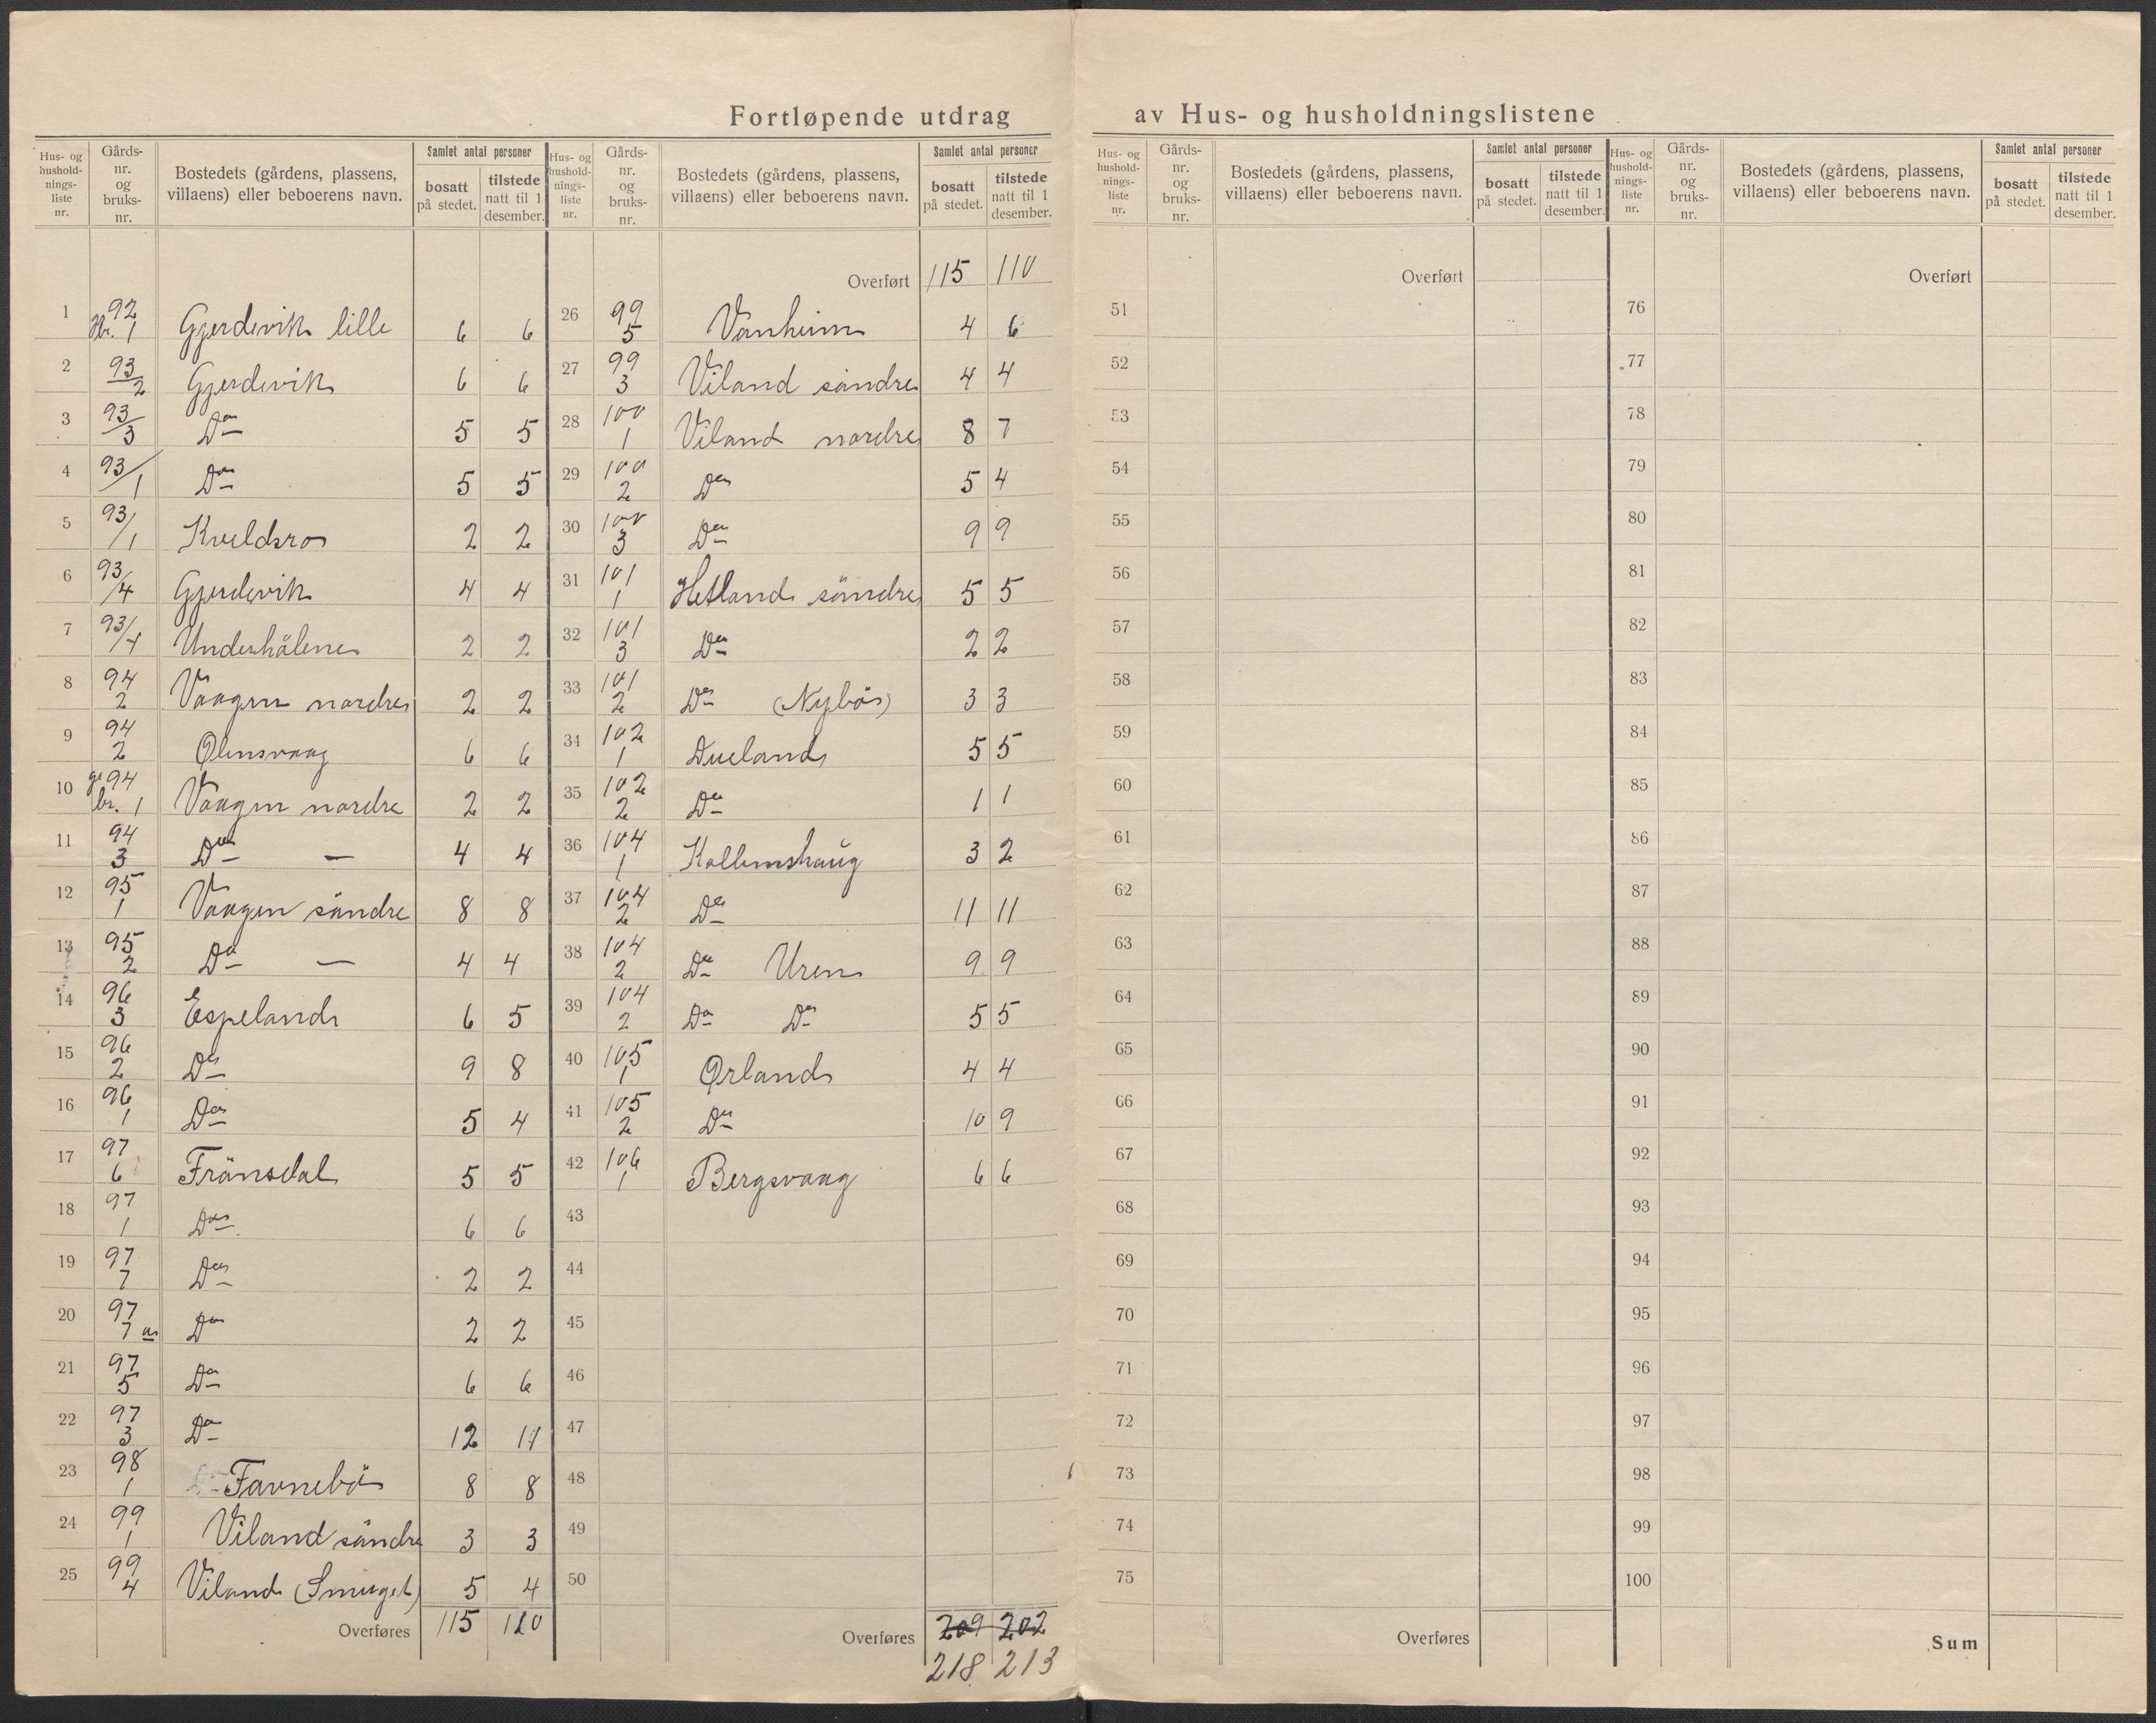 Fortløpende utdrag av Hus- og husholdningslistene
Hus- og hushold- nings- liste nr. | Gårds- nr. og bruks- nr. | Bostedets (gårdens, plassens, villaens) eller beboerens navn. | Samlet antal personer | bosatt på stedet. | tilstede natt til 1 desember.
1 | 92 br. 1 | Gjerdevik lille | 6 | 6
2 | 93/2 | Gjerdevik | 6 | 6
3 | 93/3 | Do | 5 | 5
4 | 93/1 | Do | 5 | 5
5 | 93/1 | Kveldsro | 2 | 2
6 | 93/4 | Gjerdevik | 4 | 4
7 | 93/4 | Underhålene | 2 | 2
8 | 94 2 | Vaagen nordre | 2 | 2
9 | 94 2 | Ølensvaag | 6 | 6
10 | g. 94 br. 1 | Vaagen nordre | 2 | 2
11 | 94 3 | Do — | 4 | 4
12 | 95 1 | Vaagen söndre | 8 | 8
13 | 95 2 | Do — | 4 | 4
14 | 96 3 | Espeland | 6 | 5
15 | 96 2 | Do | 9 | 8
16 | 96 1 | Do | 5 | 4
17 | 97 6 | Frånsdal | 5 | 5
18 | 97 1 | Do | 6 | 6
19 | 97 7 | Do | 2 | 2
20 | 97 7 a | Do | 2 | 2
21 | 97 5 | Do | 6 | 6
22 | 97 3 | Do | 12 | 11
23 | 98 1 | Favnebö | 8 | 8
24 | 99 1 | Viland söndre | 3 | 3
25 | 99 4 | Viland (Smuget) | 5 | 4
Overføres | 115 | 110
Hus- og hushold- nings- liste nr. | Gårds- nr. og bruks- nr. | Bostedets (gårdens, plassens, villaens) eller beboerens navn. | Samlet antal personer | bosatt på stedet. | tilstede natt til 1 desember.
Overført | 115 | 110
26 | 99 5 | Vanheim | 4 | 6
27 | 99 3 | Viland söndre | 4 | 4
28 | 100 1 | Viland nordre | 8 | 7
29 | 100 2 | Do | 5 | 4
30 | 100 3 | Do | 9 | 9
31 | 101 1 | Hetland söndre | 5 | 5
32 | 101 3 | Do | 2 | 2
33 | 101 2 | Do (Nybö) | 3 | 3
34 | 102 1 | Dueland | 5 | 5
35 | 102 2 | Do | 1 | 1
36 | 104 1 | Kallemshaug | 3 | 2
37 | 104 2 | Do | 11 | 11
38 | 104 2 | Do Uren | 9 | 9
39 | 104 2 | Do Do | 5 | 5
40 | 105 1 | Ørland | 4 | 4
41 | 105 2 | Do | 10 | 9
42 | 106 1 | Bergsvaag | 6 | 6
43
44
45
46
47
48
49
50
Overføres | 209 | 202
218 | 213
Hus- og hushold- nings- liste nr. | Gårds- nr. og bruks- nr. | Bostedets (gårdens, plassens, villaens) eller beboerens navn. | Samlet antal personer | bosatt på stedet. | tilstede natt til 1 desember.
Overført
51
52
53
54
55
56
57
58
59
60
61
62
63
64
65
66
67
68
69
70
71
72
73
74
75
Overføres
Hus- og hushold- nings- liste nr. | Gårds- nr. og bruks- nr. | Bostedets (gårdens, plassens, villaens) eller beboerens navn. | Samlet antal personer | bosatt på stedet. | tilstede natt til 1 desember.
Overført
76
77
78
79
80
81
82
83
84
85
86
87
88
89
90
91
92
93
94
95
96
97
98
99
100
Sum